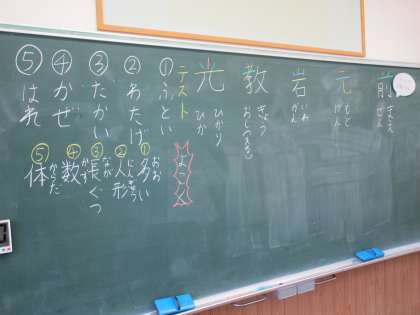 前
まえ
ぜん
元
もと
げん
岩
いわ
がん
教
きょう
光
ひかり
ひか
テスト
①ふとい
②わたげ
③たかい
④かぜ
⑤はれ
よこく
①多い
おお
②人形
にんぎょう
③長ぐつ
なが
④数
かず
⑤体
からだ